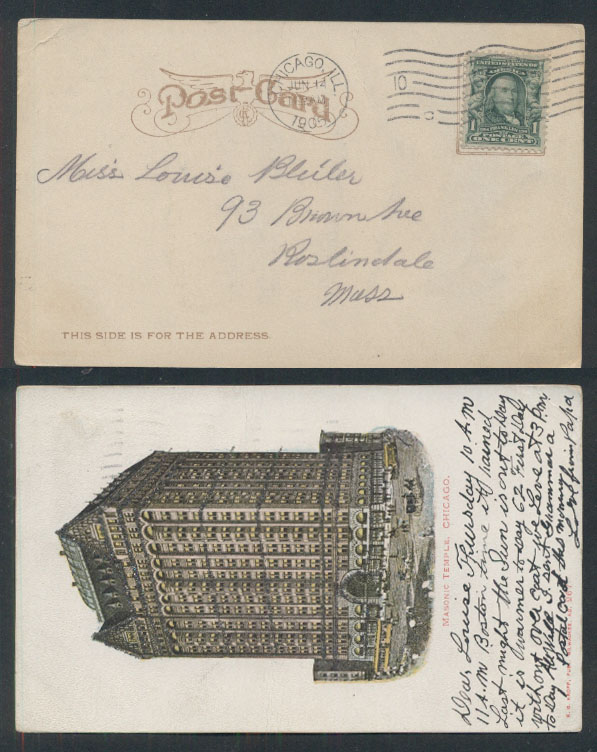 Post Card
CHICAGO, ILL.
JUN 14
190
10
UNITED STATES OF AMERICA
FRANKLIN
1 POSTAGE 1
ONE CENT
Miss Louise Bleiler
93 Brown Ave
Roslindale
Mass
THIS SIDE IS FOR THE ADDRESS.
MASONIC TEMPLE, CHICAGO.
Dear Louise Thursday 10 A.M
11 A.M Boston time it rained
Last night the Sun is out to day
it is warmer to day 62 First day
without over coat five Leve at 3 P.m
to day All Well I sent Gramma a
Postal card this morning
Love from Papa